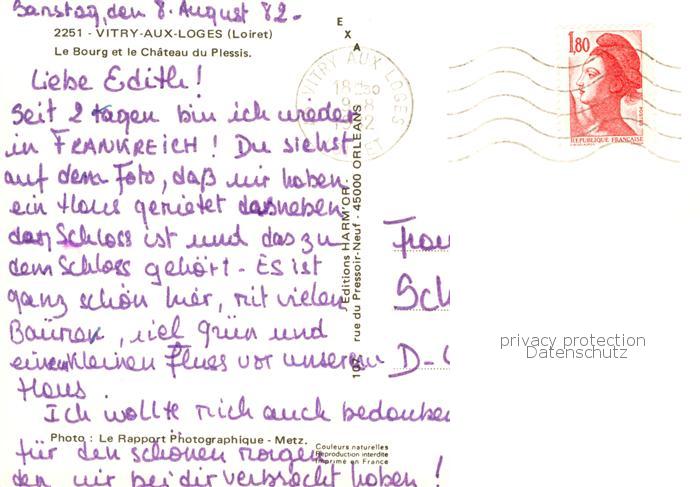 Samstag, den 8. August 82.
2251 - VITRY-AUX-LOGES (Loiret)
Le Bourg et le Château du Plessis.
E
X
A
Liebe Edith!
Seit 2 tagen bin ich wieder
in FRANKREICH! Du siehst
auf dem Foto, daß wir haben
ein Haus gemietet das neben
das Schloss ist und das zu
dem Schloss gehört - Es ist
ganz schön hier, mit vielen
Baümen, viel grün und
einen kleinen Fluss vor unserem
Haus.
Ich wollte mich auch bedanken
für den schönen morgen
den wir bei dir verbracht haben!
Photo : Le Rapport Photographique - Metz.
Couleurs naturelles
Reproduction interdite
Imprimé en France
Editions HARM'OR -
107 rue du Pressoir-Neuf - 45000 ORLEANS
VITRY AUX LOGES
LOIRET
1,80
REPUBLIQUE FRANÇAISE
Frau
Sch
D-
privacy protection
Datenschutz